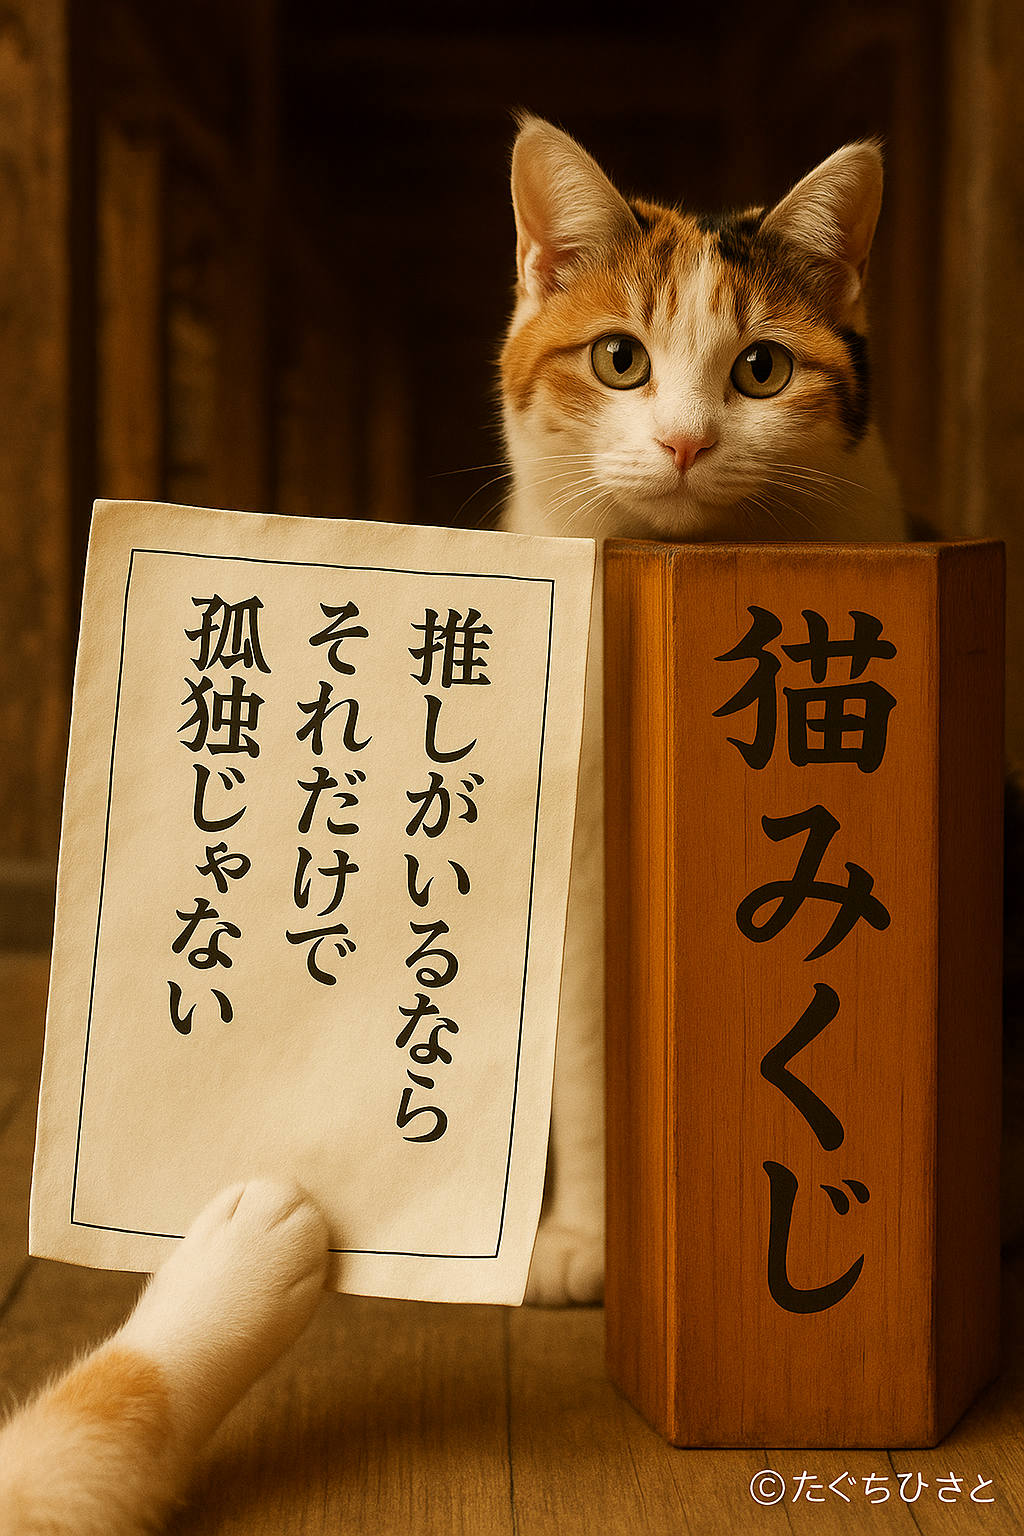 推しがいるなら
それだけで
孤独じゃない
猫みくじ
©たぐちひさと